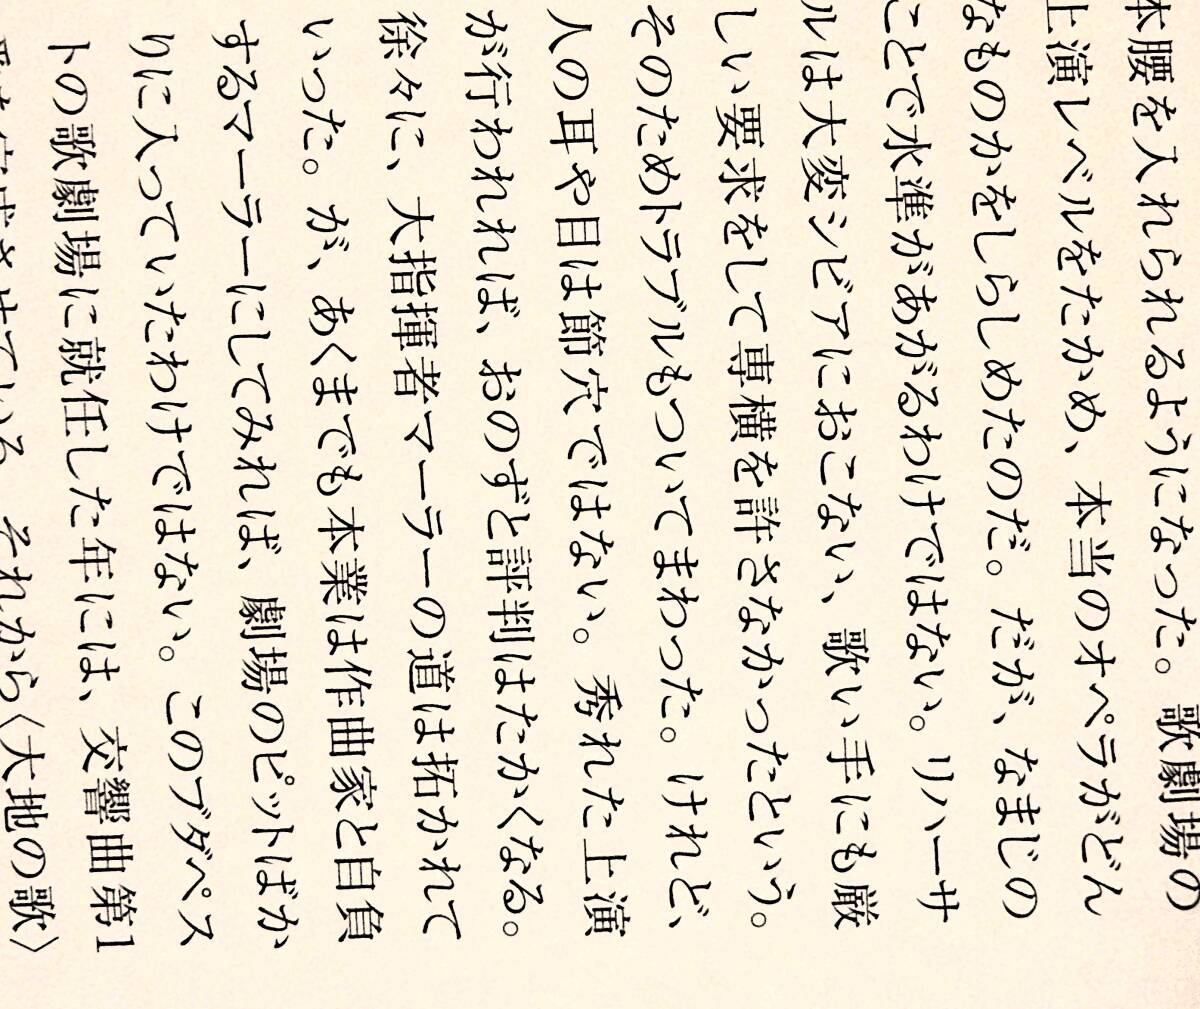 本腰を入れられるようになった。歌劇場の
上演レベルをたかめ、本当のオペラがどん
なものかをしらしめたのだ。だが、なまじの
ことで水準があがるわけではない。リハーサ
ルは大変シビアにおこない、歌い手にも厳
しい要求をして専横を許さなかったという。
そのためトラブルもついてまわった。けれど、
人の耳や目は節穴ではない。秀れた上演
が行われれば、おのずと評判はたかくなる。
徐々に、大指揮者マーラーの道は拓かれて
いった。が、あくまでも本業は作曲家と自負
するマーラーにしてみれば、劇場のピットばか
りに入っていたわけではない。このブダペス
トの歌劇場に就任した年には、交響曲第1
させている。それから〈大地の歌〉